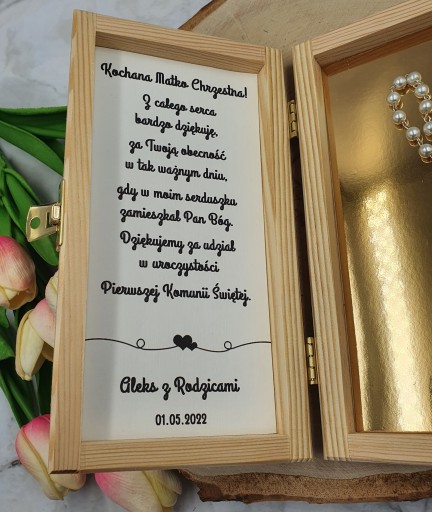 Kochana Matko Chrzestna!
Z całego serca
bardzo dziękuję,
za Twoją obecność
w tak ważnym dniu,
gdy w moim serduszku
zamieszkał Pan Bóg.
Dziękujemy za udział
w uroczystości
Pierwszej Komunii Świętej.
Aleks z Rodzicami
01.05.2022